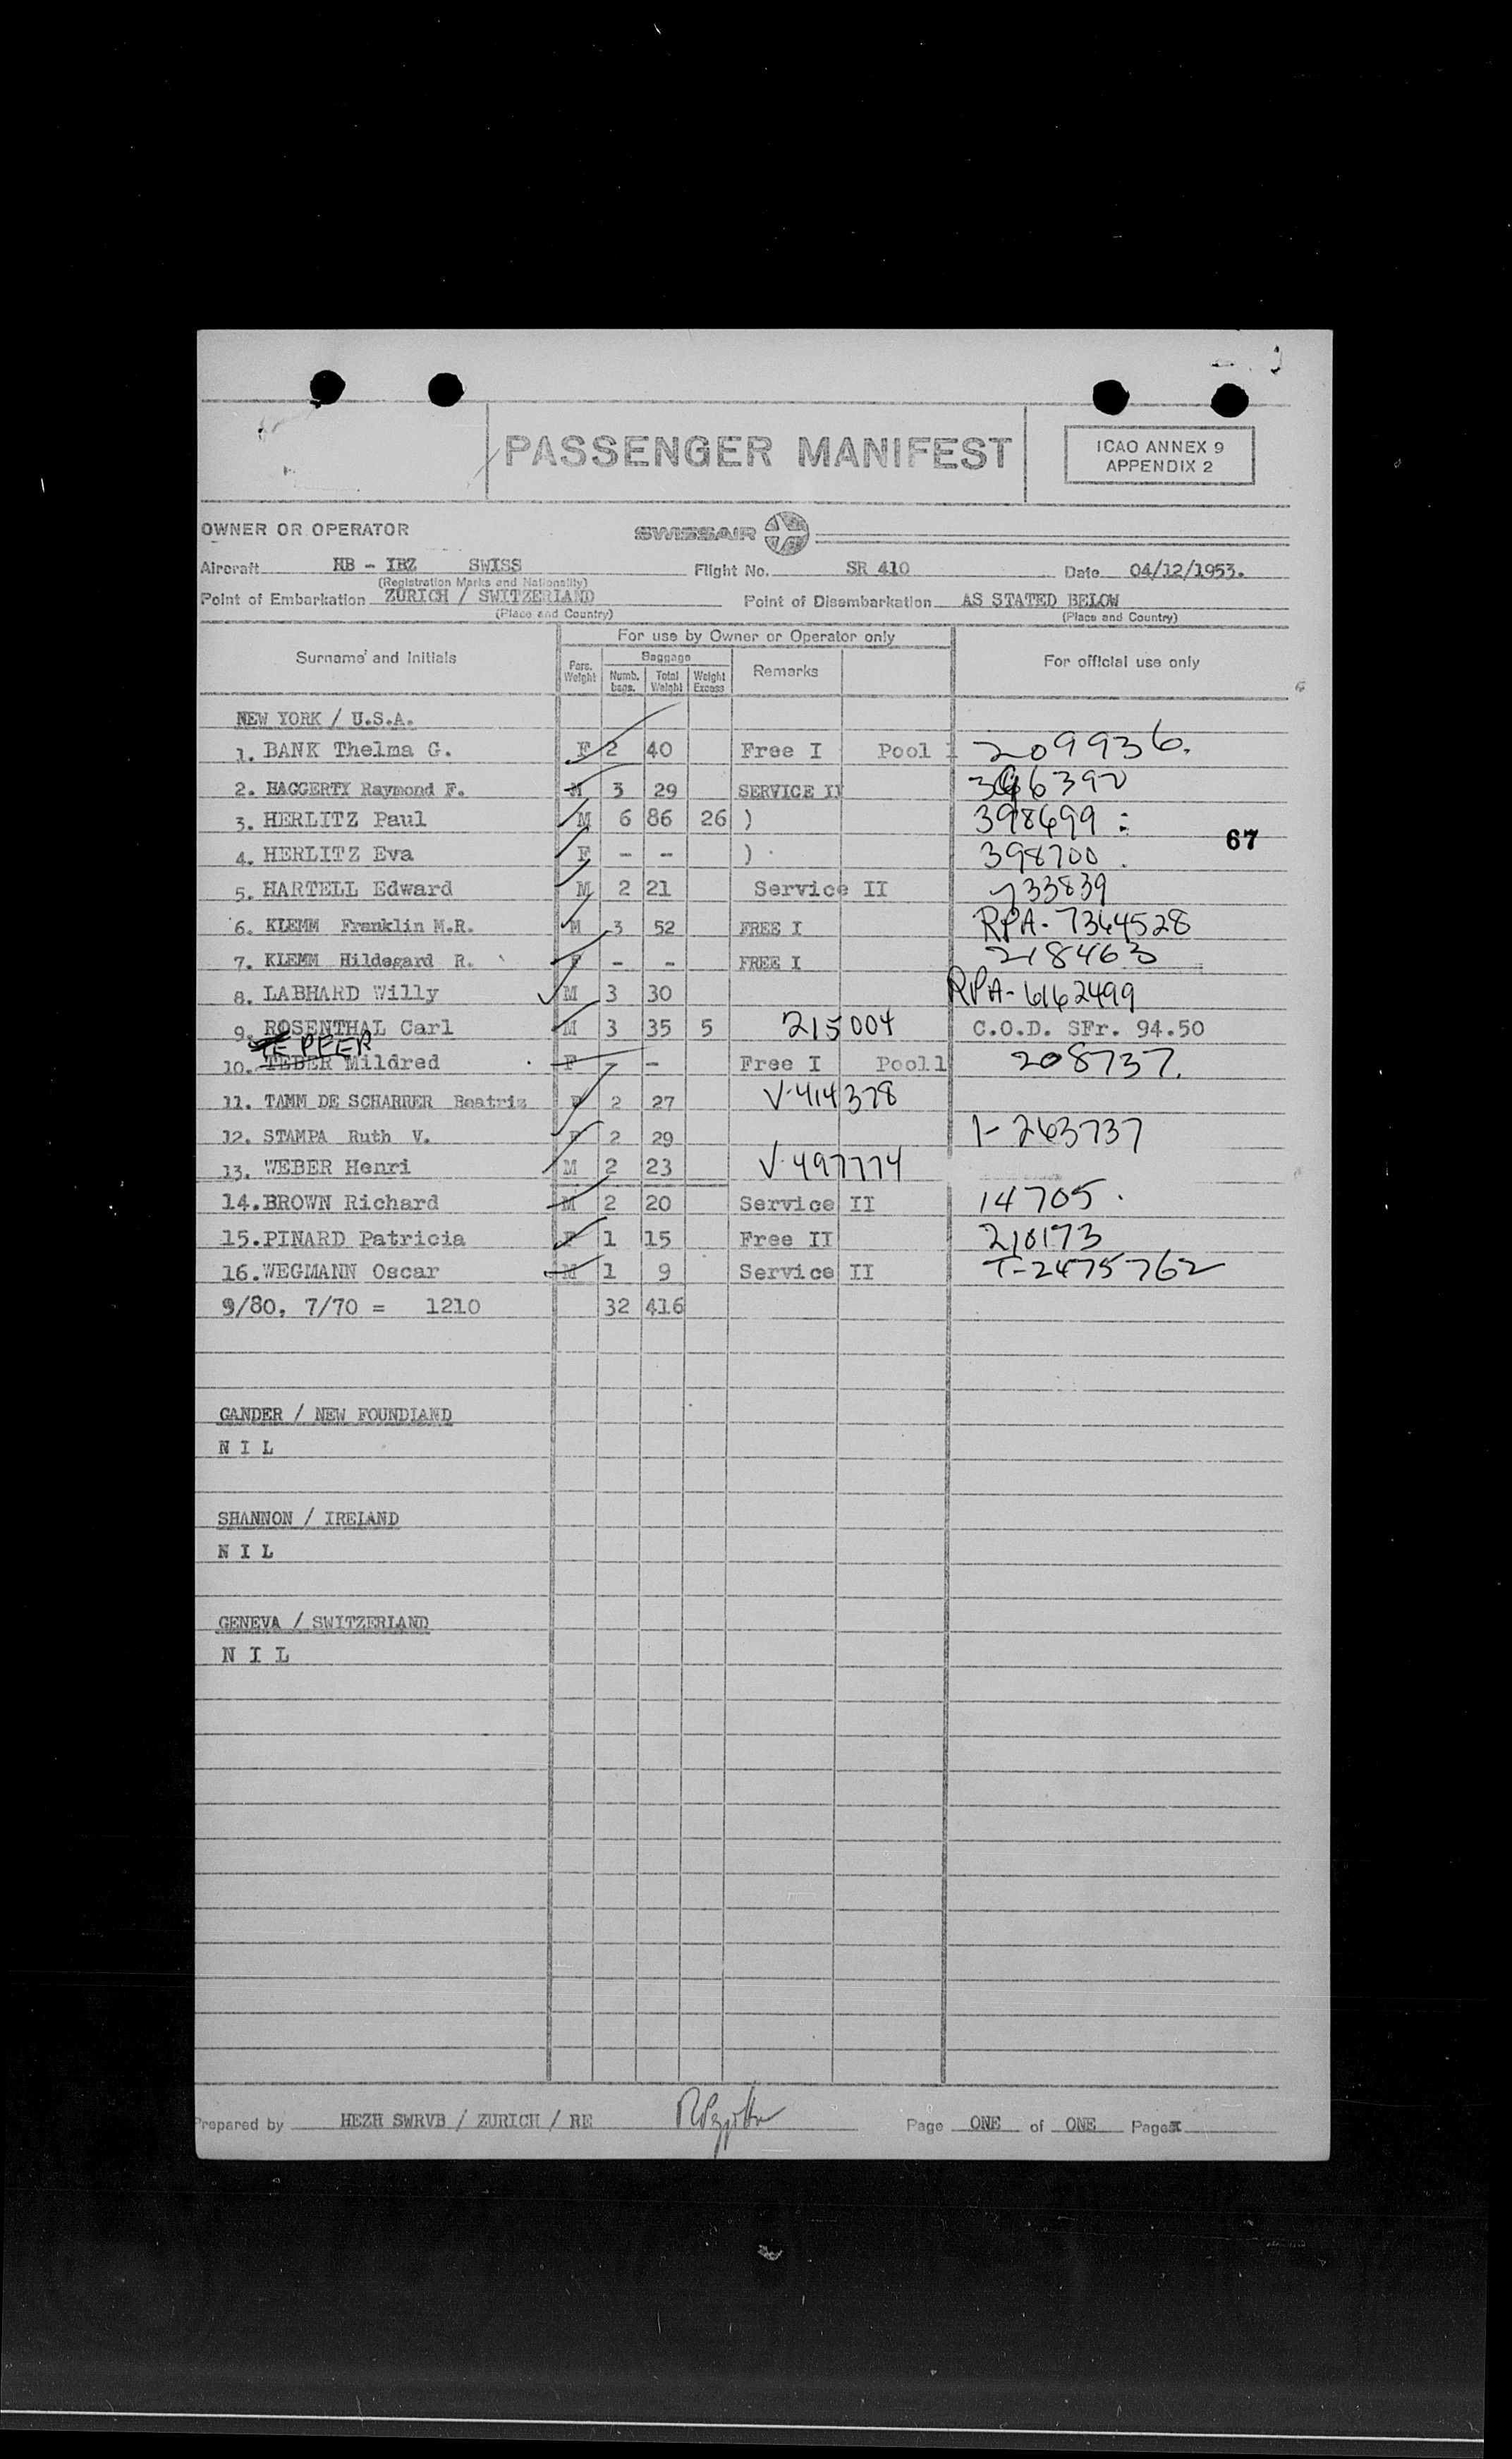 PASSENGER MANIFEST
ICAO ANNEX 9
APPENDIX 2
OWNER OR OPERATOR SWISSAIR
Aircraft HB - IBZ SWISS Flight No. SR 410 Date 04/12/1953.
(Registration Marks and Nationality)
Point of Embarkation ZURICH / SWITZERLAND Point of Disembarkation AS STATED BELOW
(Place and Country) (Place and Country)
For use by Owner or Operator only
Surname and Initials Pers. Weight Baggage Numb. bags. Total Weight Weight Excess Remarks For official use only
NEW YORK / U.S.A.
1. BANK Thelma G. F 2 40 Free I Pool 1 209936.
2. HAGGERTY Raymond F. M 3 29 SERVICE II 366392
3. HERLITZ Paul M 6 86 26 ) 398699
67
4. HERLITZ Eva F - - ) 398700
5. HARTELL Edward M 2 21 Service II 733839
6. KLEMM Franklin M.R. M 3 52 FREE I RPA-7364528
7. KLEMM Hildegard R. F - - FREE I 218463
8. LABHARD Willy M 3 30 RPA-6162499
9. ROSENTHAL Carl M 3 35 5 215004 C.O.D. SFr. 94.50
TEPEER
10. TEBER Mildred F - - Free I Pool1 208737.
11. TAMM DE SCHARRER Beatriz F 2 27 V-414378
12. STAMPA Ruth V. F 2 29 1-263737
13. WEBER Henri M 2 23 V-497774
14. BROWN Richard M 2 20 Service II 14705.
15. PINARD Patricia F 1 15 Free II 210173
16. WEGMANN Oscar M 1 9 Service II T-2475762
9/80, 7/70 = 1210 32 416
GANDER / NEW FOUNDLAND
N I L
SHANNON / IRELAND
N I L
GENEVA / SWITZERLAND
N I L
Prepared by HEZH SWRVB / ZURICH / RE Page ONE of ONE Pages